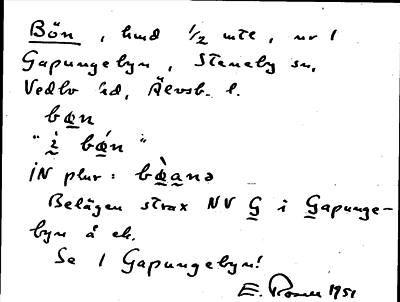 Bön, hmd 1/2 mtl, nr 1
Gapungebyn, Steneby sn,
Vedbo hd, Älvsb. l.
bœn
"ὶ bœ́n"
IN plur: bœ̀ana
Belägen strax NV G i Gapunge-
byn å ek.
Se 1 Gapungebyn!
E. 1951